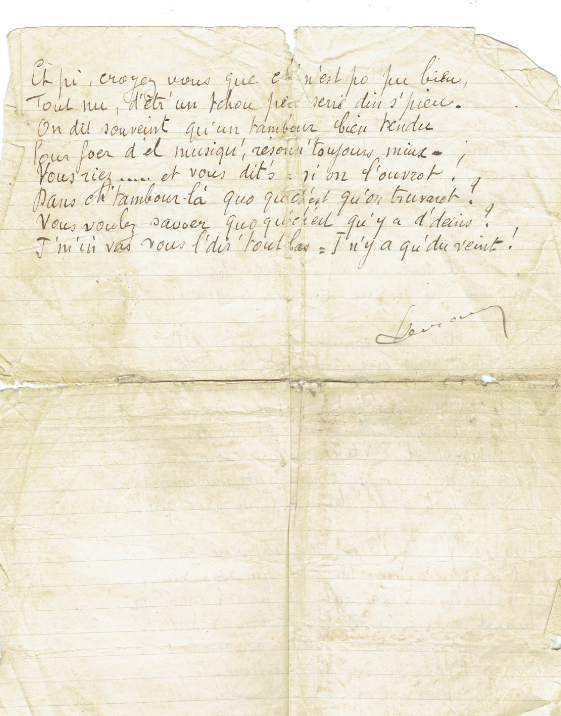 Et pi, croyez vous que ch' n'est po pu bien,
Tout nu, d'êtr' un tchou peu serré din s'pieu.
On dit souveint qu'un tambour bien tendu
Pour foer d'el musiqu', résonn' toujours miux =
Vous riez..... et vous dit's : si on l'ouvrot !
Dans ch'tambour-là quo qu' ch'est qu'on truvrot ?
Vous voulez savoer quo qu'ch'est qu'y a d'dains ?
J'm'in vas vous l'dir' tout bas = I n'y a qu'du veint !